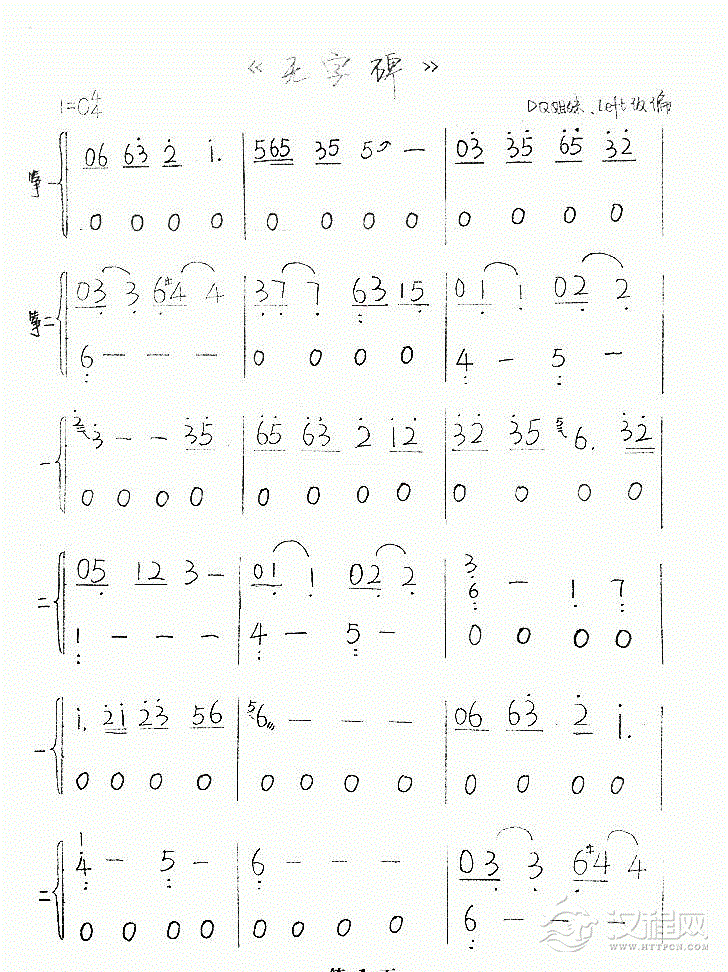 《无字碑》
1=C 4/4
DQ组练、Left改编
筝一 06 63 2 1. | 565 35 5 — | 03 35 65 32
0 0 0 0 | 0 0 0 0 | 0 0 0 0
筝二 03 3 6#4 4 | 37 7 63 15 | 01 1 02 2
6 — — — | 0 0 0 0 | 4 — 5 —
一 2 3 — — 35 | 65 63 2 12 | 32 35 6. 32
0 0 0 0 | 0 0 0 0 | 0 0 0 0
二 05 12 3 — | 01 1 02 2 | 3 6 — 1 7
1 — — — | 4 — 5 — | 0 0 0 0
一 1. 21 23 56 | 56 — — — | 06 63 2 1.
0 0 0 0 | 0 0 0 0 | 0 0 0 0
二 1 4 — 5 — | 6 — — — | 03 3 6#4 4
0 0 0 0 | 0 0 0 0 | 6 — — —
汉程网
HTTPCN